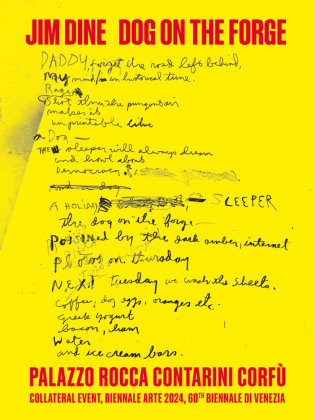 JIM DINE DOG ON THE FORGE
DADDY, forget the road left behind,
My mind is an historical tune.
Rage
Shot thru the pungent air
makes us
unprintable like
a Dog —
THE sleeper will always dream
and howl about
Democracy
and a dog
A HOLIDAY SLEEPER
the dog on the forge —
Poisoned by the dark amber, internet
Photos on thursday
NEXT Tuesday we wash the sheets.
Coffee, dog eggs, oranges etc.
Greek yogurt
bacon, ham
Water
and ice cream bars.
PALAZZO ROCCA CONTARINI CORFÙ
COLLATERAL EVENT, BIENNALE ARTE 2024, 60TH BIENNALE DI VENEZIA